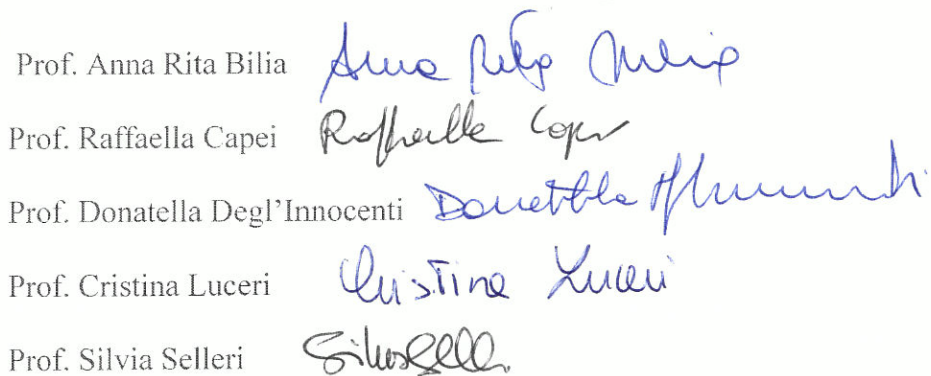 Prof. Anna Rita Bilia Anna Rita Bilia
Prof. Raffaella Capei Raffaella Capei
Prof. Donatella Degl'Innocenti Donatella
Prof. Cristina Luceri Cristina Luceri
Prof. Silvia Selleri